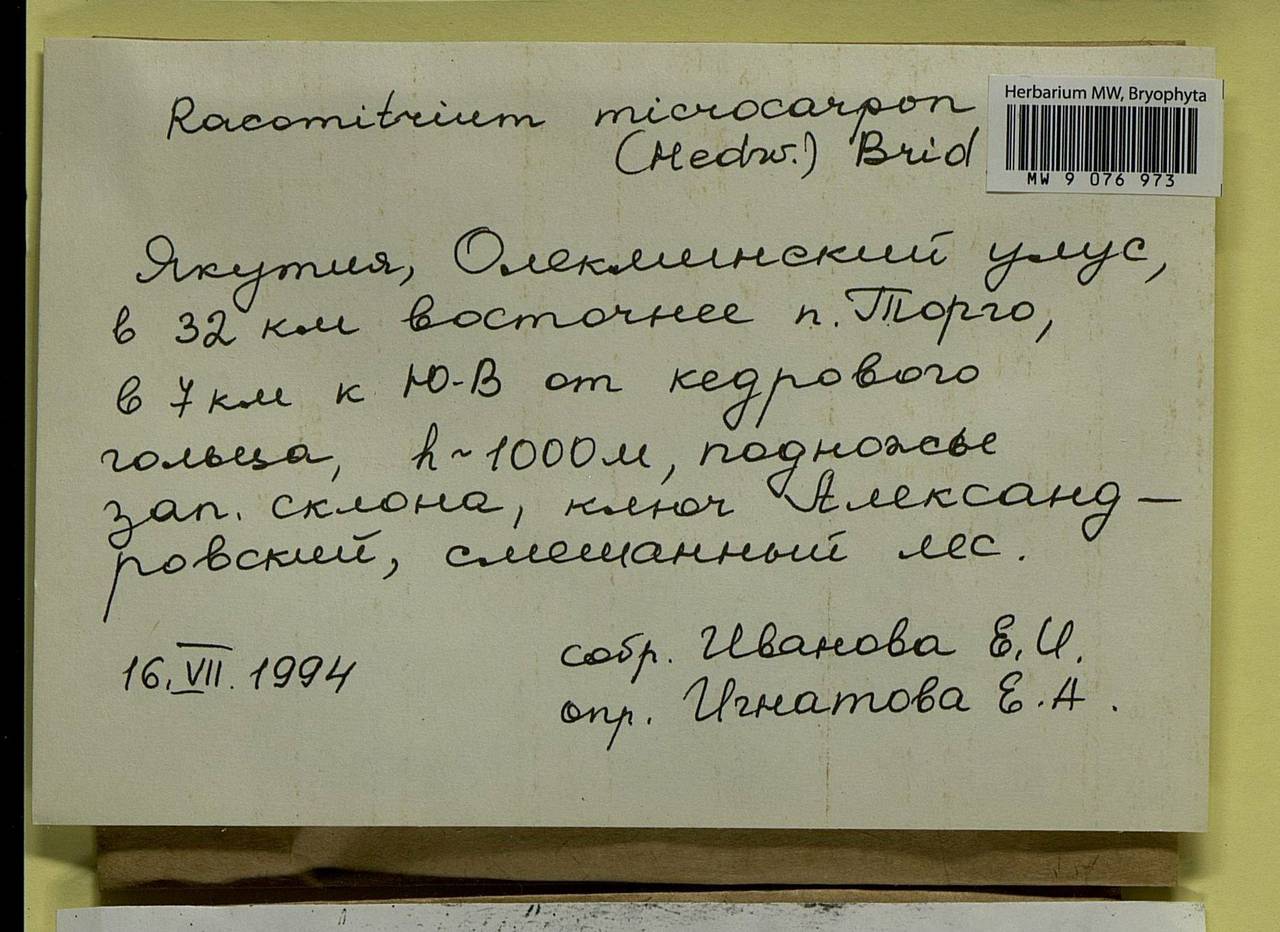 Racomitrium microcarpon
(Hedw.) Brid
Herbarium MW, Bryophyta
MW 9 076 973
Якутия, Олекминский улус,
в 32 км восточнее п. Торго,
в 7 км к Ю-В от кедрового
гольца, h ~ 1000 м, подножье
зап. склона, ключ Александ-
ровский, смешанный лес.
16.VII.1994
собр. Иванова Е.И.
опр. Игнатова Е.А.